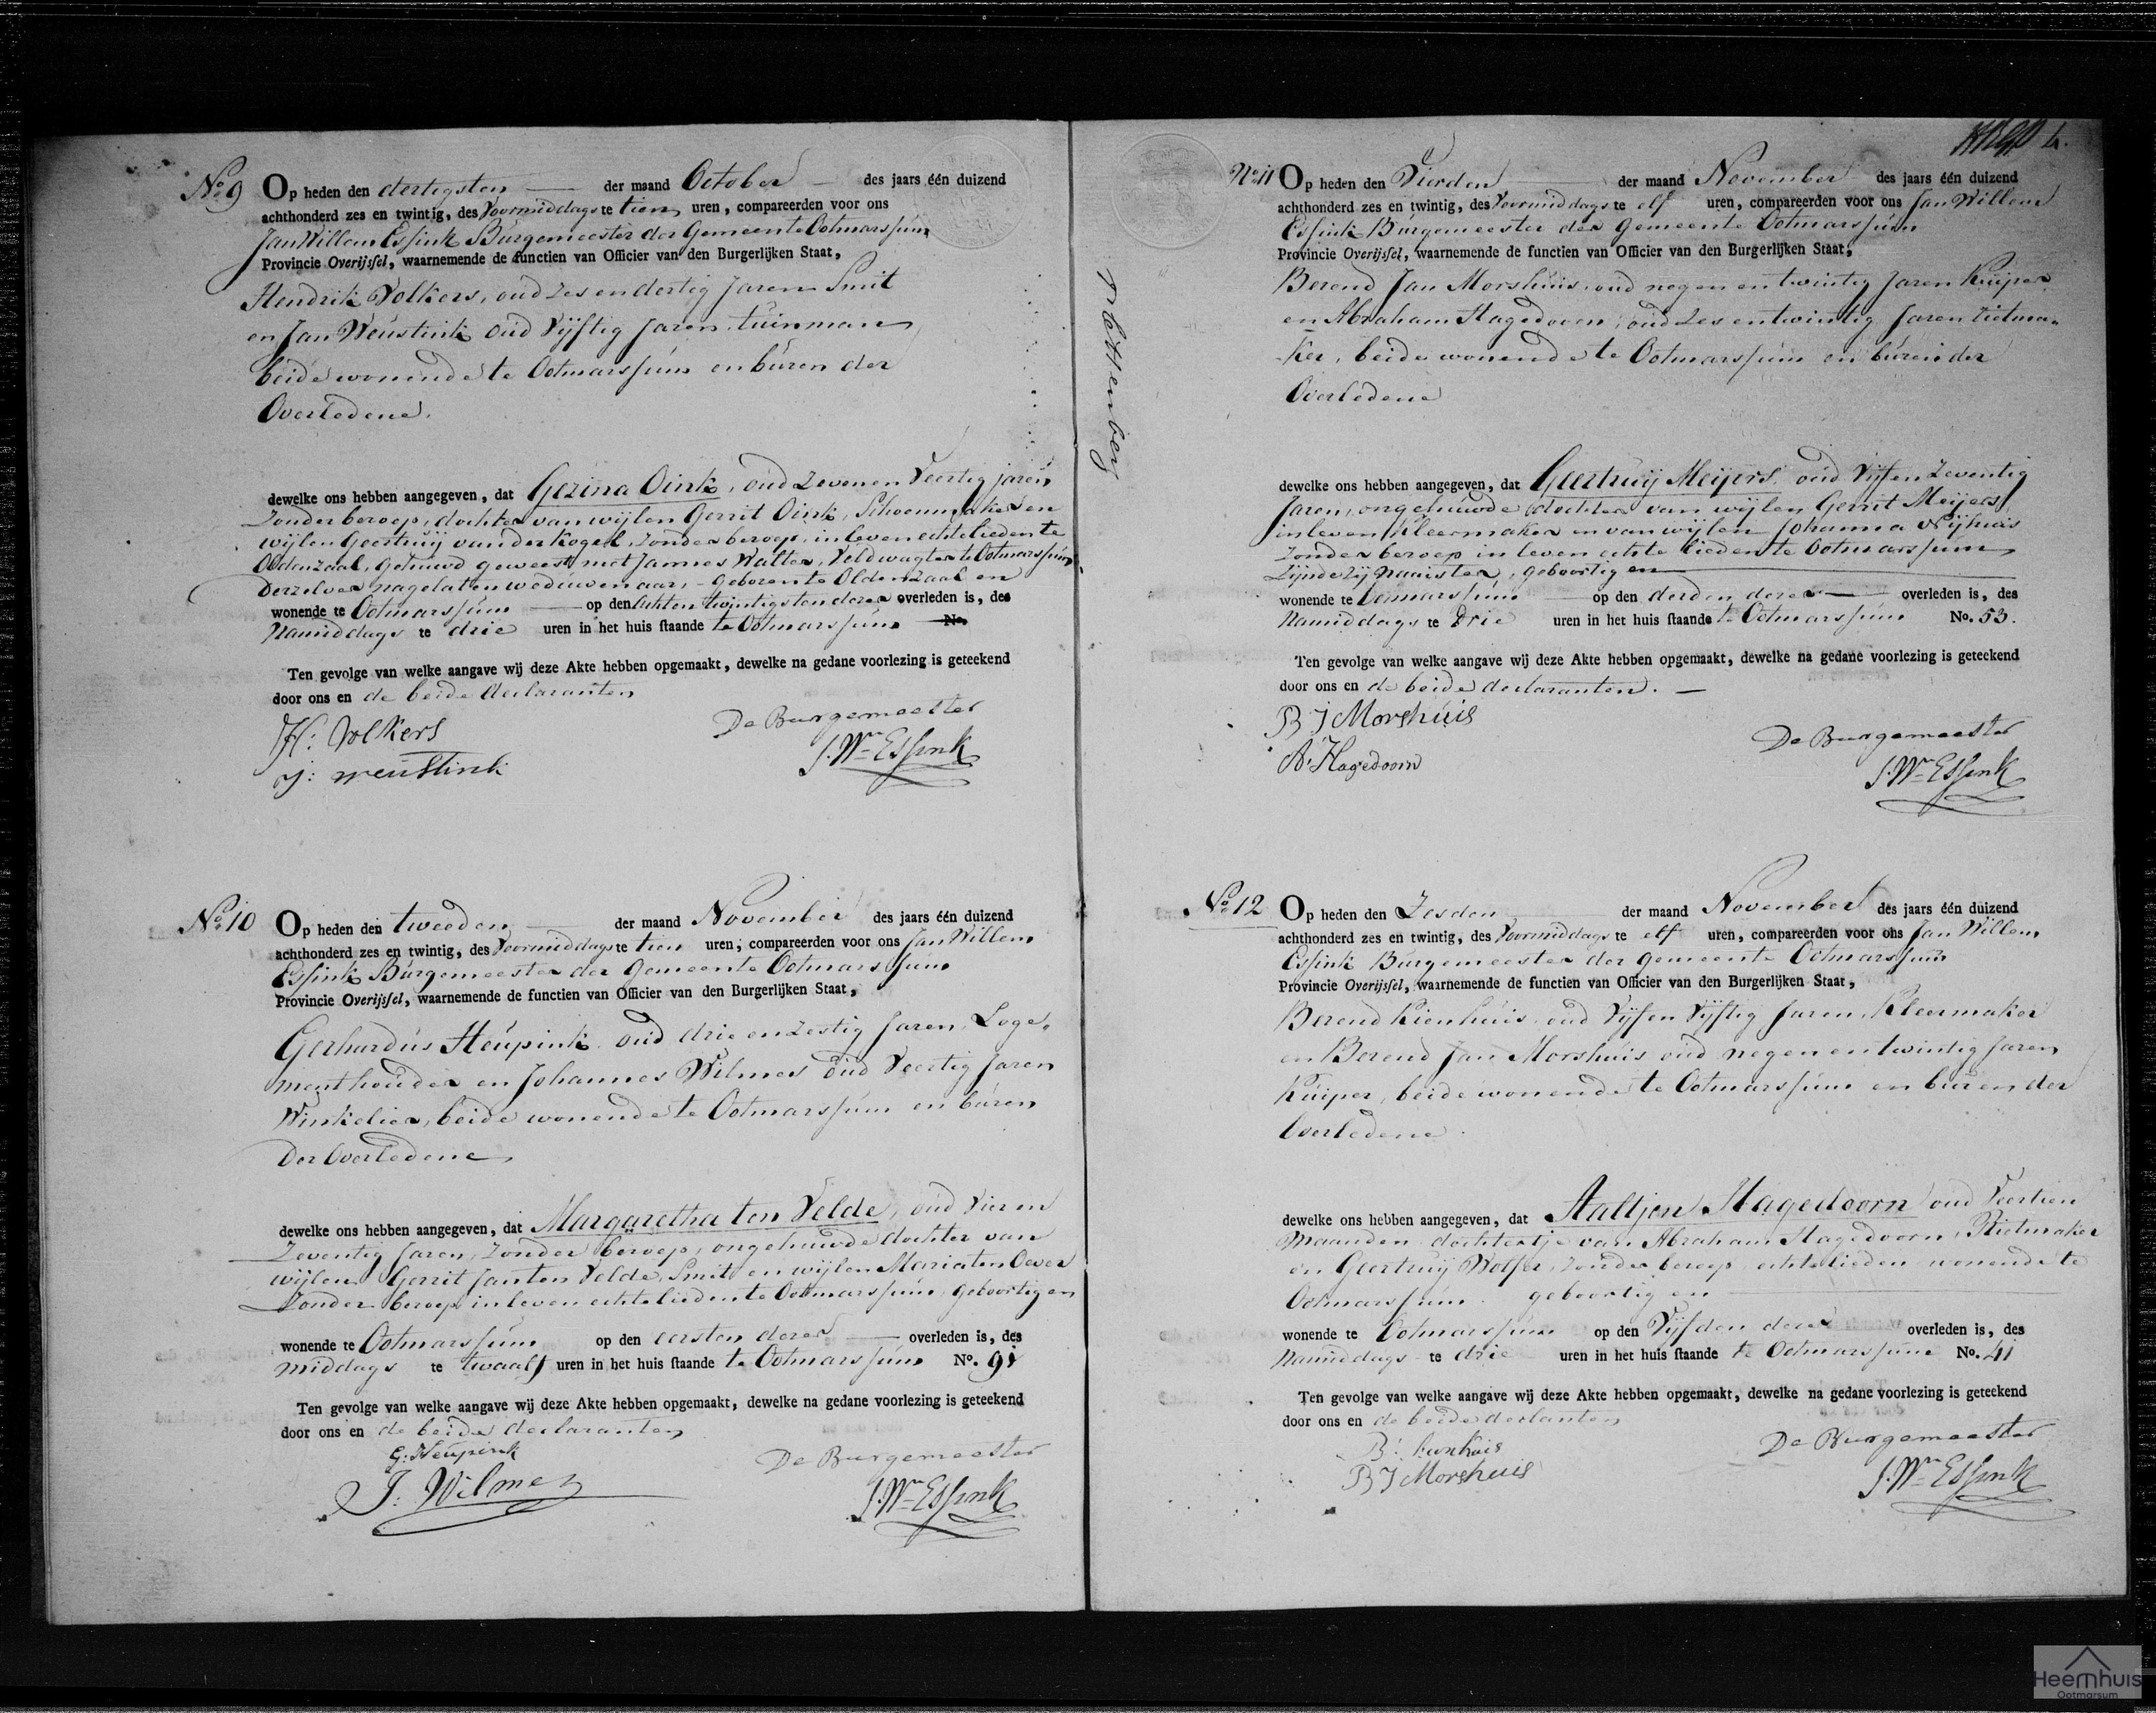 No 9 Op heden den dertigsten der maand October des jaars één duizend
achthonderd zes en twintig, des Voormiddags te tien uren, compareerden voor ons
Jan Willem Essink Burgemeester der Gemeente Ootmarssum
Provincie Overijssel, waarnemende de functien van Officier van den Burgerlijken Staat,
Hendrik Volkers, oud zes en dertig Jaren Smit
en Jan Weustink oud Vijftig Jaren, tuinman
beide wonende te Ootmarssum en buren der
Overledene.
dewelke ons hebben aangegeven, dat Gezina Oink, oud Zeven en Veertig jaren
Zonder beroep, dochter van wijlen Gerrit Oink, Schoenmaker en
wijlen Geertruij van der Kogel, Zonder beroep, in leven echtelieden te
Oldenzaal, Gehuwd geweest met Jannes Walter, Veldwagter te Ootmarssum
Derzelver nagelaten weduwenaar, - geboren te Oldenzaal en
wonende te Ootmarssum op den Achten twintigsten dezer overleden is, des
Namiddags te drie uren in het huis staande te Ootmarssum No.
Ten gevolge van welke aangave wij deze Akte hebben opgemaakt, dewelke na gedane voorlezing is geteekend
door ons en de beide declaranten
H: Volkers
J: Weustink
De Burgemeester
J. Wm Essink
No 10 Op heden den tweeden der maand November des jaars één duizend
achthonderd zes en twintig, des Voormiddags te tien uren, compareerden voor ons Jan Willem
Essink Burgemeester der Gemeente Ootmarssum
Provincie Overijssel, waarnemende de functien van Officier van den Burgerlijken Staat,
Gerhardus Heupink oud drie en zestig Jaren, Loge„
menthouder en Johannes Wilmes oud Veertig Jaren
Winkelier, beide wonende te Ootmarssum en buren
Der Overledene
dewelke ons hebben aangegeven, dat Margaretha ten Velde, oud Vier en
Zeventig Jaren, Zonder beroep, ongehuwde dochter van
wijlen Gerrit Jan ten Velde, Smit en wijlen Maria ten Oever
Zonder beroep in leven echtelieden te Ootmarssum, geboortig en
wonende te Ootmarssum op den eersten dezer overleden is, des
Middags te twaalf uren in het huis staande te Ootmarssum No.
Ten gevolge van welke aangave wij deze Akte hebben opgemaakt, dewelke na gedane voorlezing is geteekend
door ons en de beide declaranten
G: Heupink
J: Wilmes
De Burgemeester
J. Wm Essink
Rottenberg
4.
No 11 Op heden den Vierden der maand November des jaars één duizend
achthonderd zes en twintig, des Voormiddags te elf uren, compareerden voor ons Jan Willem
Essink Burgemeester der Gemeente Ootmarssum
Provincie Overijssel, waarnemende de functien van Officier van den Burgerlijken Staat,
Berend Jan Morshuis, oud negen en twintig Jaren Kuiper
en Abraham Hagedoorn, oud Zes en twintig Jaren rietma-
ker, beide wonende te Ootmarssum en buren der
Overledene
dewelke ons hebben aangegeven, dat Geertruij Meijers, oud Vijf en Zeventig
Jaren, ongehuwde dochter van wijlen Gerrit Meijers
in leven Kleermaker en van wijlen Johanna Nijhuis
Zonder beroep in leven echte lieden te Ootmarssum
Zijnde Zij Naaister, geboortig en
wonende te Ootmarssum op den derden dezer overleden is, des
Namiddags te Drie uren in het huis staande te Ootmarssum No. 53.
Ten gevolge van welke aangave wij deze Akte hebben opgemaakt, dewelke na gedane voorlezing is geteekend
door ons en de beide declaranten.
B J Morshuis
A: Hagedoorn
De Burgemeester
J. Wm Essink
No 12 Op heden den Zesden der maand November des jaars één duizend
achthonderd zes en twintig, des Voormiddags te elf uren, compareerden voor ons Jan Willem
Essink Burgemeester der Gemeente Ootmarssum
Provincie Overijssel, waarnemende de functien van Officier van den Burgerlijken Staat,
Berend Kienhuis oud Vijf en Vijftig Jaren, Kleermaker
en Berend Jan Morshuis oud negen en twintig Jaren
Kuiper, beide wonende te Ootmarssum en buren der
Overledene.
dewelke ons hebben aangegeven, dat Aaltjen Hagedoorn oud Veertien
Maanden dochtertje van Abraham Hagedoorn, Rietmaker
en Geertruij Wolfer, Zonder beroep echtelieden wonende te
Ootmarssum. geboortig en
wonende te Ootmarssum op den Vijfden dezer overleden is, des
Namiddags te drie uren in het huis staande te Ootmarssum No. 41
Ten gevolge van welke aangave wij deze Akte hebben opgemaakt, dewelke na gedane voorlezing is geteekend
door ons en de beide declanten
B:
B J Morshuis
De Burgemeester
J. Wm Essink
Heemhuis
Ootmarsum